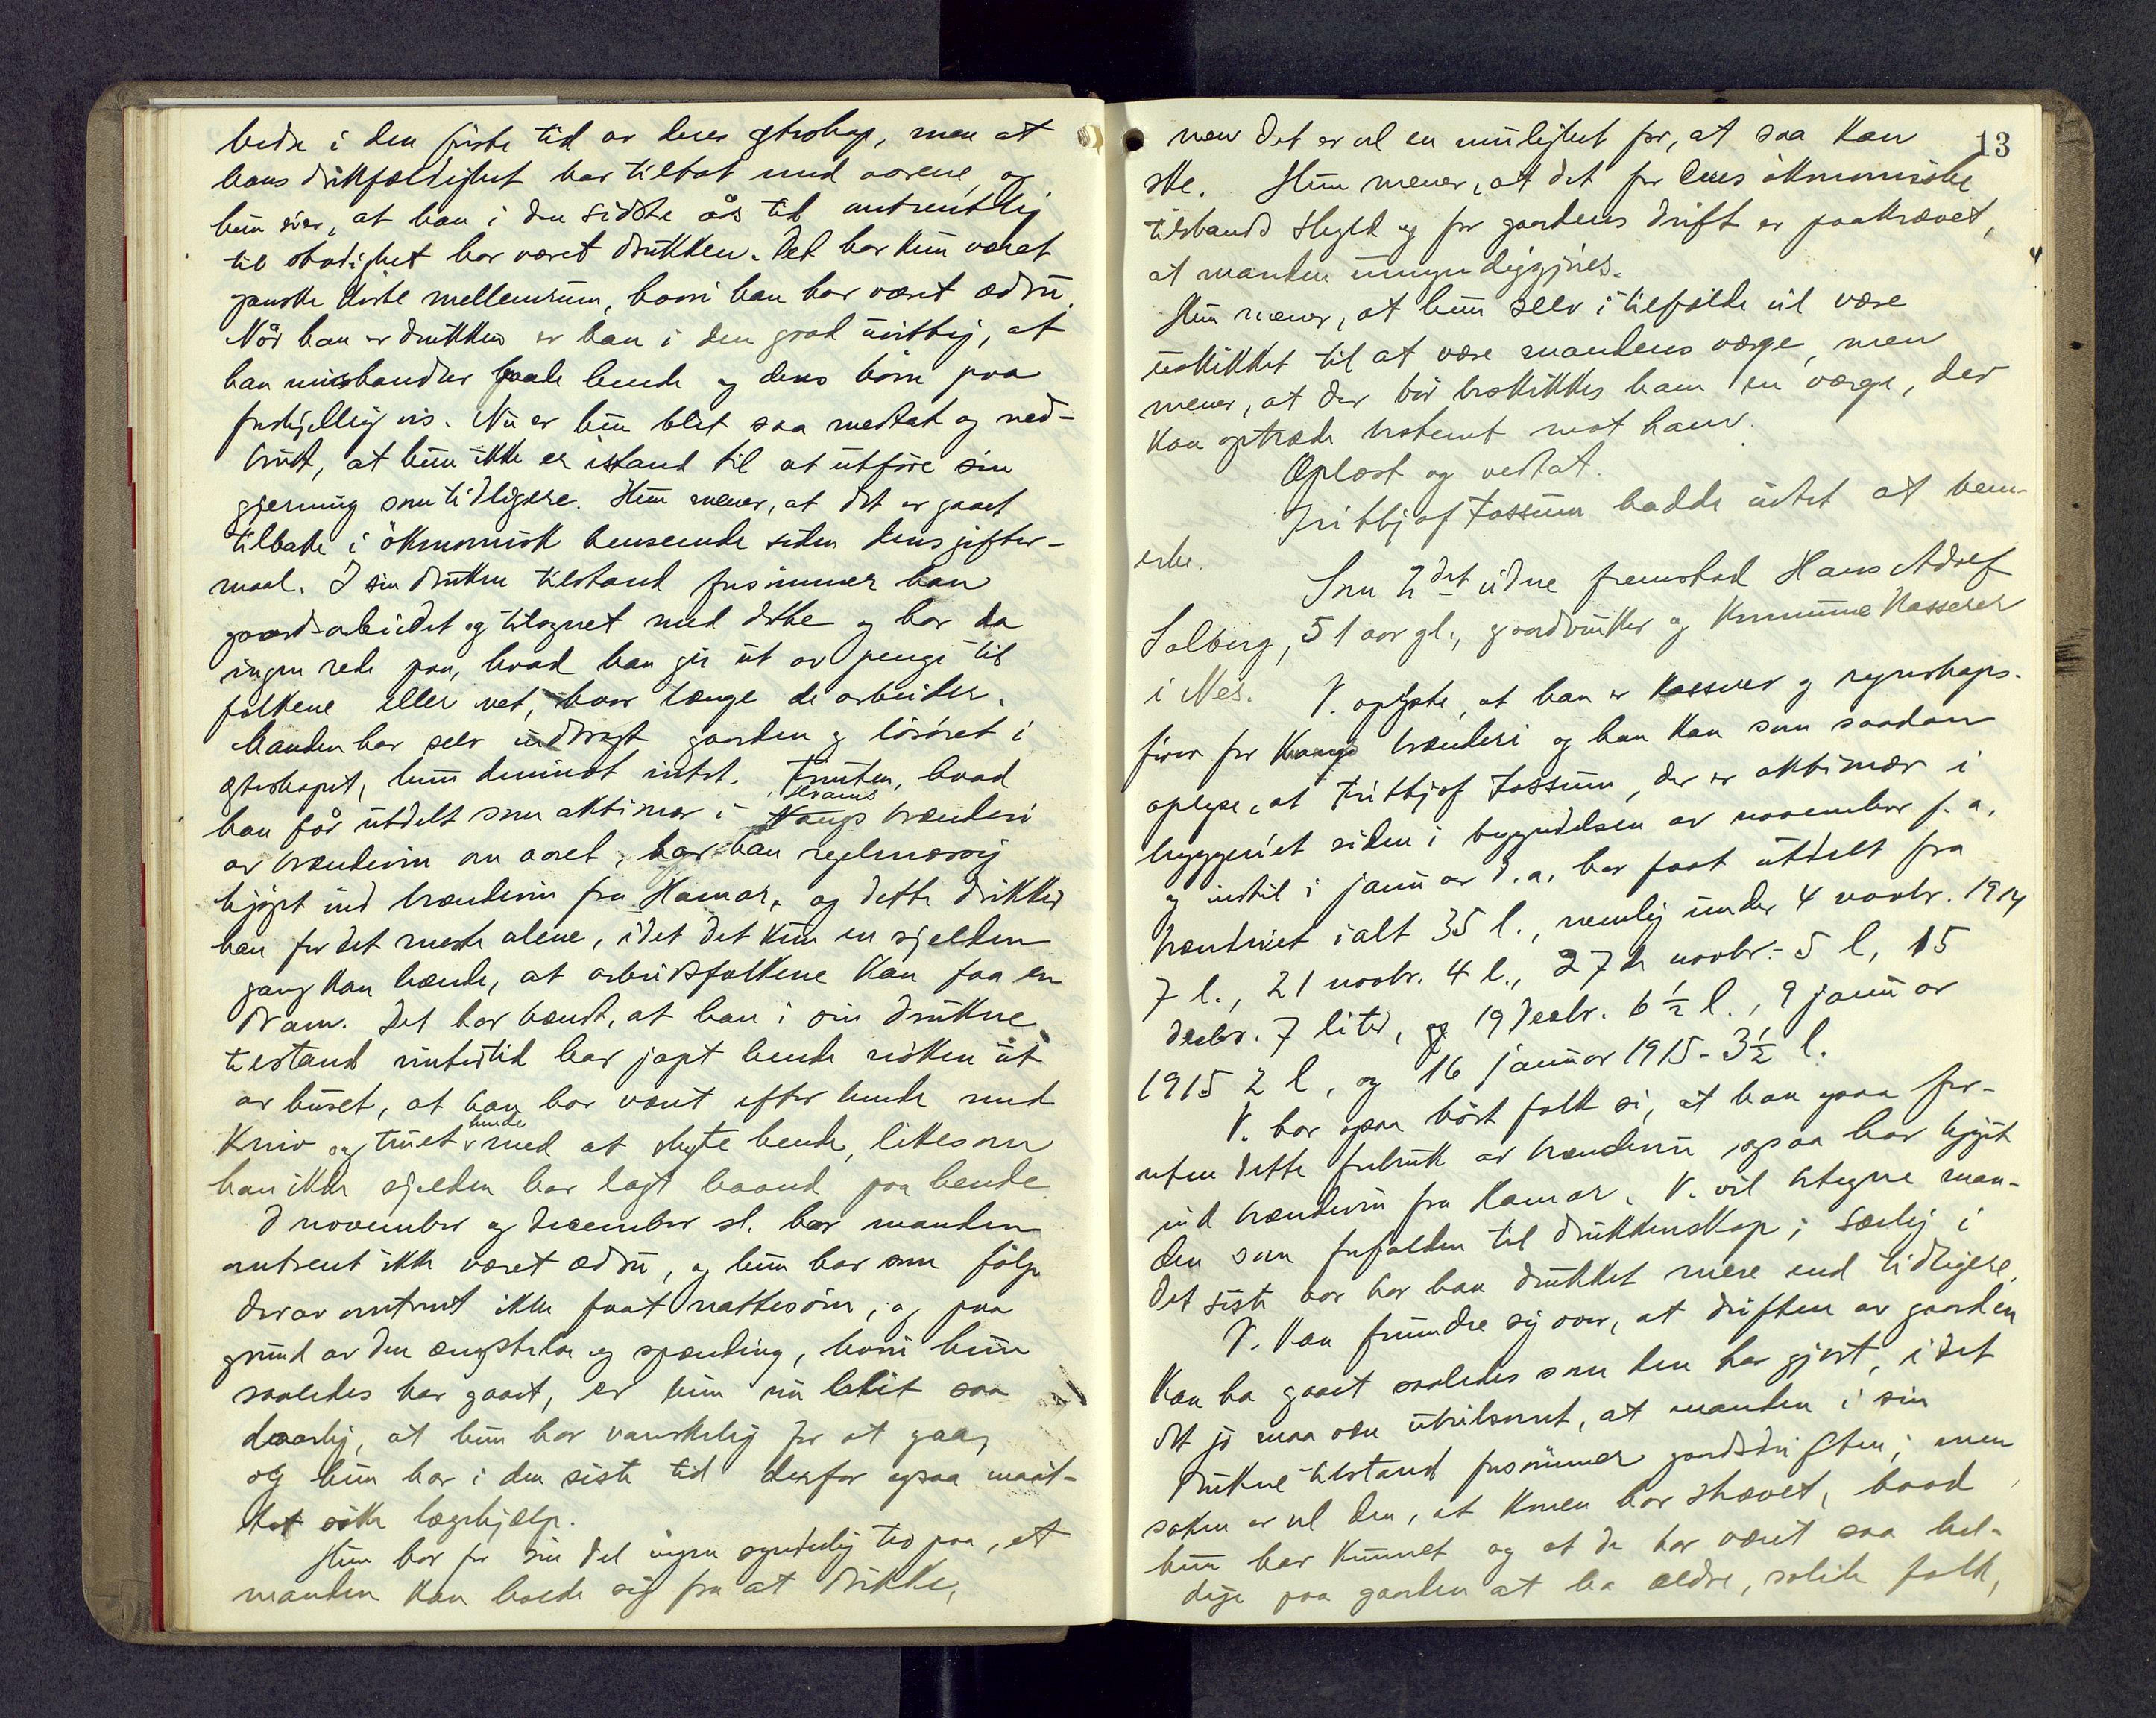 bedre i den første tid av deres egteskap, men at
hans drikfældighet har tiltat med aarene, og
hun sier, at han i den sidste års tid omtrentlig
til stadighet har været drukken. Det har kun været
ganske korte mellemrum, hvori han har været ædru.
Når han er drukken er han i den grad uvittig, at
han mishandler baade hende og deres børn paa
forskjellig vis. Nu er hun blit saa medtat og ned-
brutt, at hun ikke er istand til at utføre sin
gjerning som tidligere. Hun mener, at det er gaaet
tilbake i økonomisk henseende siden deres gifter-
maal. I sin drukne tilstand forsømmer han
gaardsarbeidet og tilsynet med dette og har da
ingen rede paa, hvad han gir ut av penge til
folkene eller vet, hvor længe de arbeider.
Manden har selv indbragt gaarden og løsøret i
egteskapet, hun derimot intet. Foruten, hvad
han får utdelt som aktionær i Kraus brænderi
av brændevin om aaret, har han regelmæssig
kjøpt ind brændevin fra Hamar, og dette drikker
han for det meste alene, idet det kun en sjelden
gang kan hænde, at arbeidsfolkene kan faa en
dram. Det har hændt, at han i sin drukne
tilstand vintertid har jagt hende naken ut
av huset, at han har været efter hende med
kniv og truet hende med at skyte hende, likesom
han ikke sjelden har lagt haand paa hende.
I november og december sl. har manden
omtrent ikke været ædru, og hun har som følge
derav omtrent ikke faat nattesøvn, og paa
grund av den ængstelse og spænding, hvori hun
saaledes har gaaet, er hun nu blit saa
daarlig, at hun har vanskelig for at gaa,
og hun har i den siste tid derfor ogsaa maat-
tet søke lægehjælp.
Hun har for sin del ingen synderlig tro paa, at
manden kan holde sig fra at drikke,
13
men det er vel en mulighet for, at saa kan
ske. Hun mener, at det for deres økonomiske
tilstands skyld og for gaardens drift er paakrævet,
at manden umyndiggjøres.
Hun mener, at hun selv i tilfælde vil være
uskikket til at være mandens værge, men
mener, at der bør beskikkes ham en værge, der
kan optræde bestemt mot ham.
Oplæst og vedtat.
Fritbjof Fossum hadde intet at bem-
erke.
Som 2det vidne fremstod Hans Adolf
Solberg, 51 aar gl., gaardbruker og Kommune Kasserer
i Nes. V. oplyste, at han er kasserer og regnskaps-
fører for Kraugs brænderi og han kan som saadan
oplyse, at Fritbjof Fossum, der er aktionær i
bryggeriet siden i begyndelsen av november f. a.
og indtil i januar d. a. har faat utdelt fra
brænderiet ialt 35 l., nemlig under 4 novbr. 1914
7 l., 21 novbr. 4 l., 27 de novbr. 5 l, 15
decbr. 7 liter, og 19 decbr. 6 ½ l., 9 januar
1915 2 l, og 16 januar 1915 - 3½ l.
V. har ogsaa hørt folk si, at han ogsaa for-
uten dette forbruk av brændevin ogsaa har kjøpt
ind brændevin fra Hamar. V. vil betegne man-
den som forfalden til drukkenskap; særlig i
det siste aar har han drukket mere end tidligere.
V. kan forundre sig over, at driften av gaarden
kan ha gaaet saaledes som den har gjort, idet
det jo maa være utvilsomt, at manden i sin
drukne tilstand forsømmer gaardsdriften; men
saken er vel den, at konen har strævet, hvad
hun har kunnet og at de har været saa hel-
dige paa gaarden at ha ældre, solide folk,